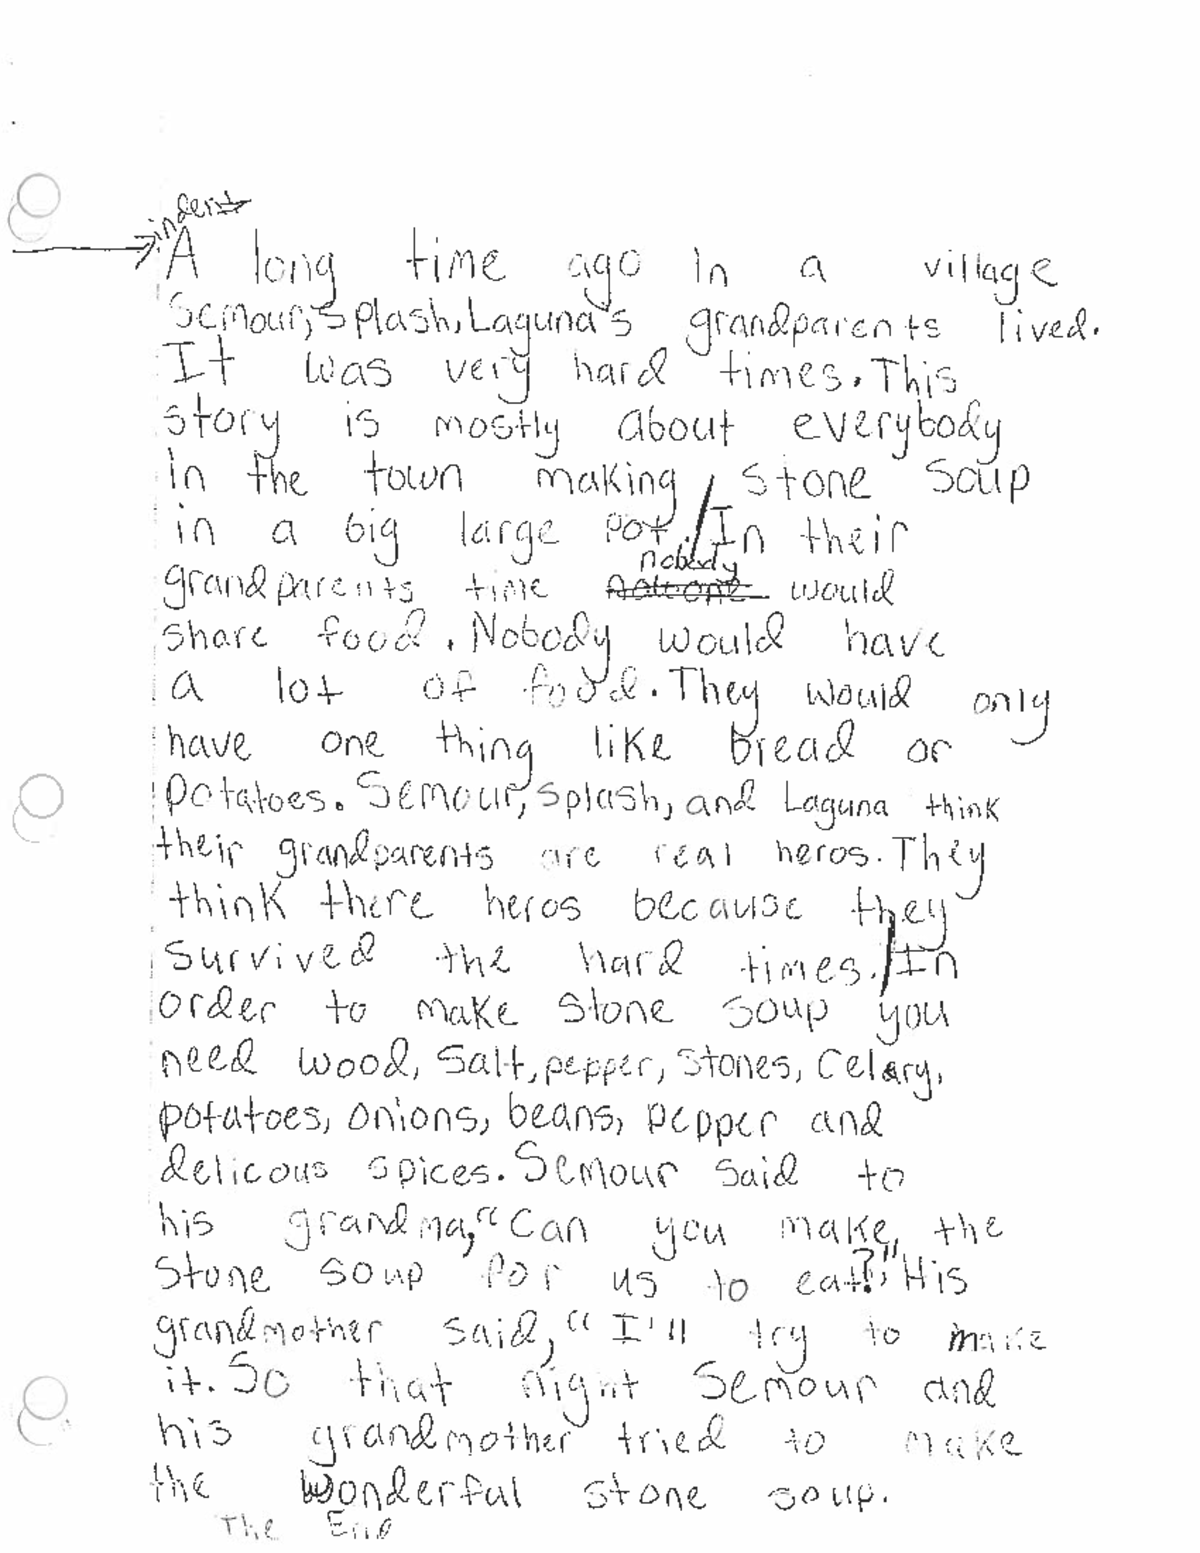 indent
A long time ago in a village
Semour, Splash, Laguna's grandparents lived.
It was very hard times. This
story is mostly about everybody
in the town making stone soup
in a big large pot. / In their
nobody
grandparents time would
share food. Nobody would have
a lot of food. They would only
have one thing like bread or
potatoes. Semour, Splash, and Laguna think
their grandparents are real heros. They
think there heros because they
survived the hard times. / In
order to make stone soup you
need wood, salt, pepper, stones, celary,
potatoes, onions, beans, pepper and
delicous spices. Semour said to
his grandma, "Can you make the
stone soup for us to eat?" His
grandmother said, "I'll try to make
it. So that night Semour and
his grandmother tried to make
the wonderful stone soup.
The End